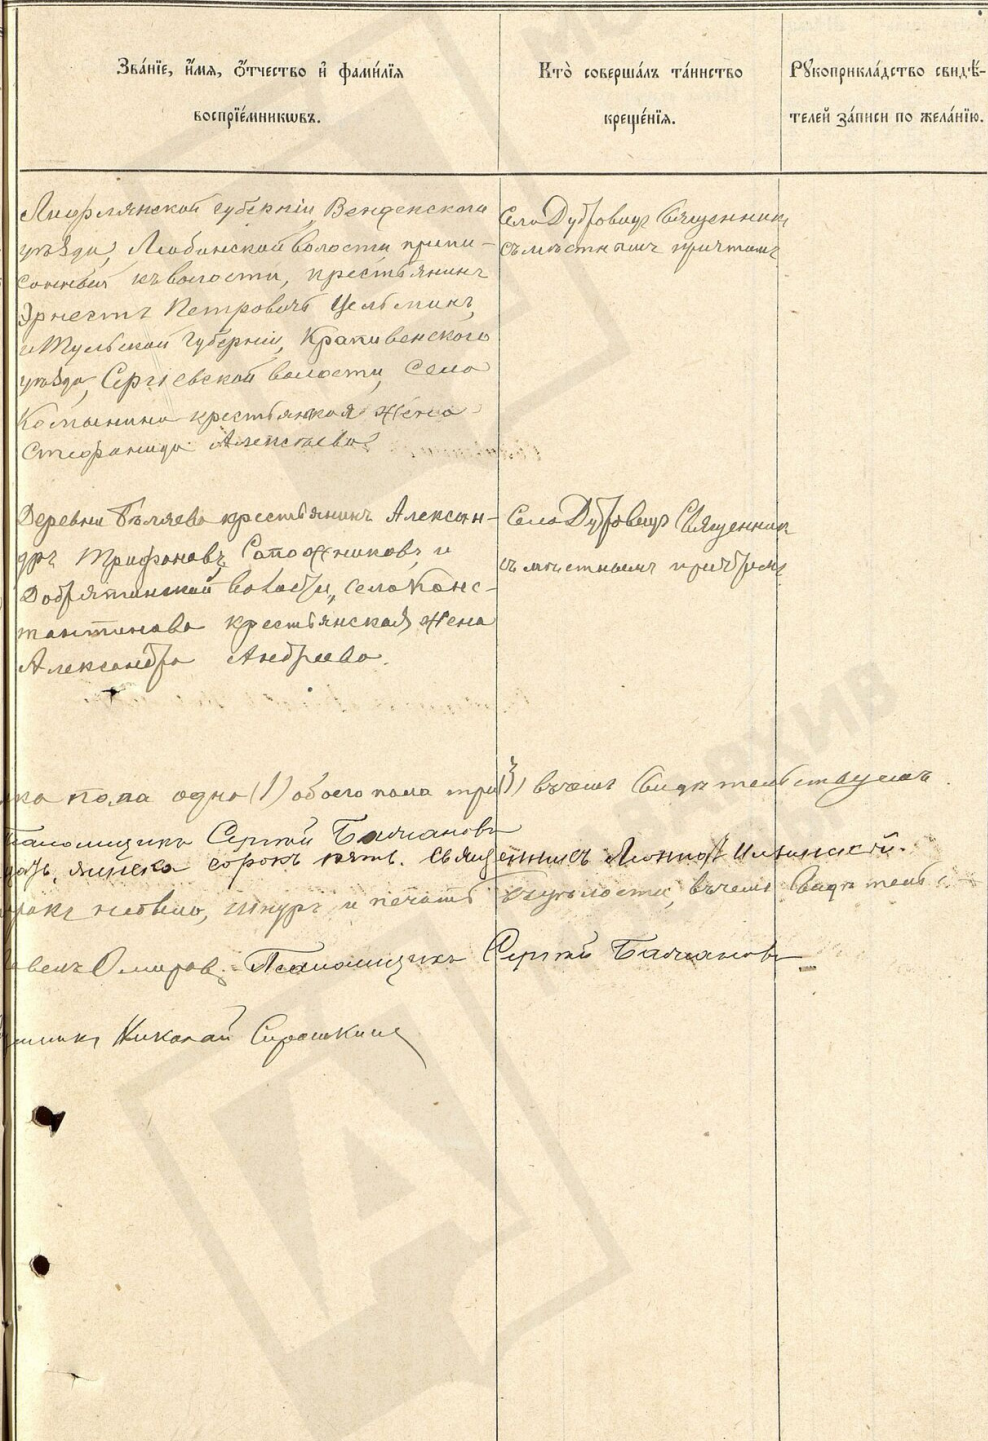 Зва́нїе, и҆́мя, ѻ҆́тчество и҆ фами́лїя
воспрїе́мникѡвъ.
Кто̀ соверша́лъ та́инство
креще́нїѧ.
Рꙋкоприкла́дство свидѣ́-
телей за́писи по жела́нїю.
Лифлянской губерніи, Венденскаго
уѣзда, волости припи-
къ волости, крестьянинъ
Эрнестъ Петровичъ Цельмикъ,
и Тульской губерніи, Крапивенскаго
уѣзда, Сергіевской волости, села
крестьянская жена
Стефанида Алексѣева.
Село Дубровицъ Священникъ
съ мѣстнымъ причтомъ
Деревни Бѣляева крестьянинъ Алексан-
дръ Трифоновъ Сапожниковъ, и
Добрятинской волости, села Конс-
тантинова крестьянская жена
Александра Андреева.
Село Дубровицъ Священникъ
съ мѣстнымъ причтомъ
пола одно (1) обоего пола три (3) въ чемъ свидѣтельствуемъ.
Псаломщикъ Сергѣй
сорокъ пять. Священникъ Ильинскій.
шнуръ и печать въ цѣлости, въ чемъ свидѣтель-
Псаломщикъ Сергѣй
Николай Сорошкинъ
АРХИВ